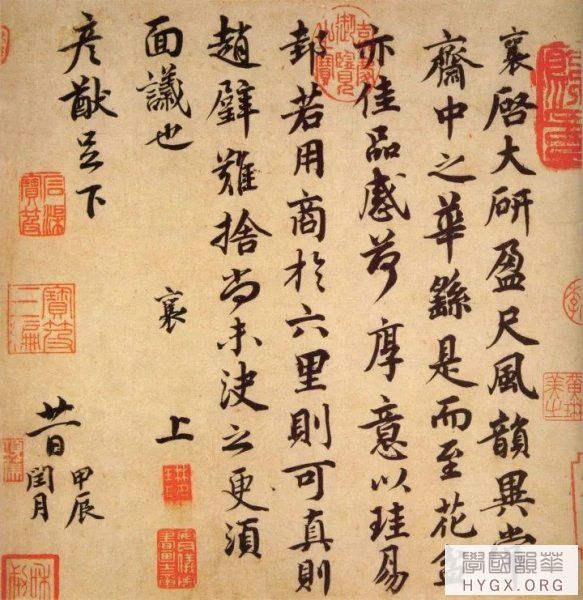 襄啓大研盈尺風韻異常
齋中之華繇是而至花盆
亦佳品感荷厚意以珪易
邽若用商於六里則可真則
趙璧難捨尚未決之更須
面議也
襄 上
彥猷足下
廿一日
甲辰
閏月
學國韻華
HYGX.ORG